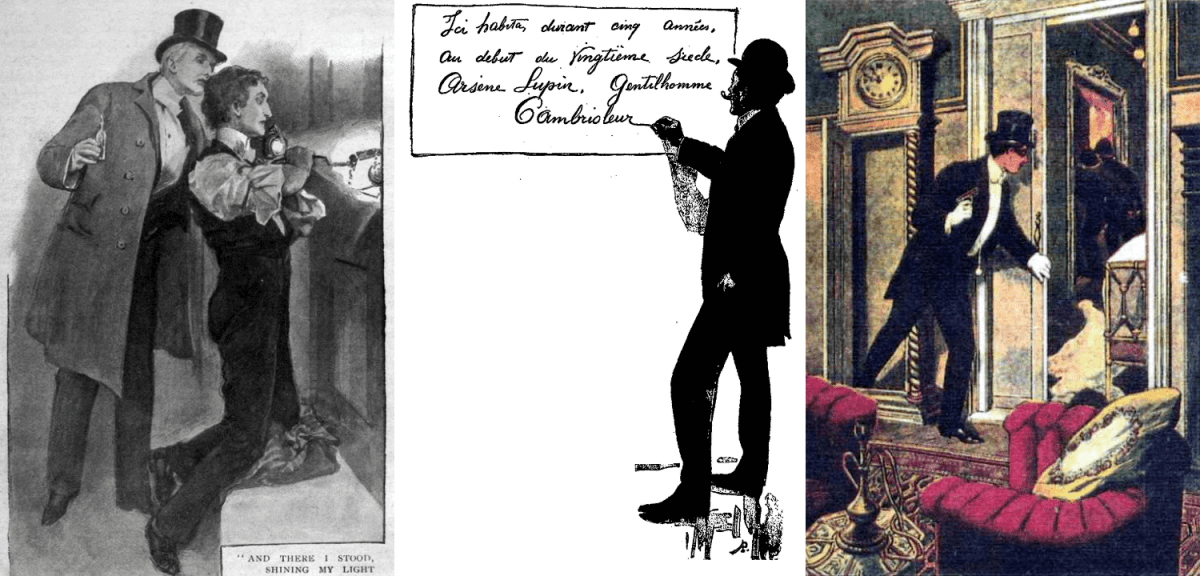 Ici habita, durant cinq années,
au début du Vingtième siècle,
Arsène Lupin, Gentilhomme
Cambrioleur
"AND THERE I STOOD,
SHINING MY LIGHT